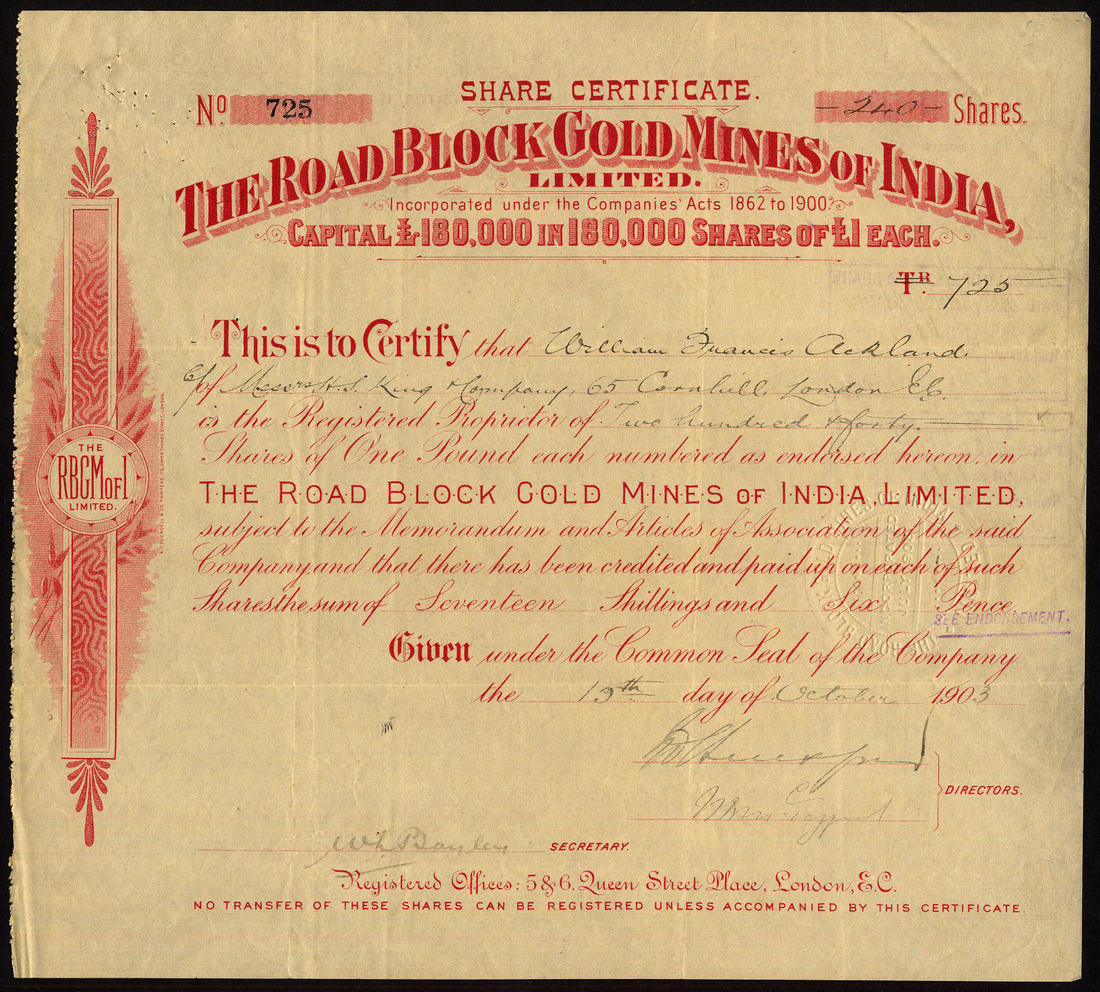 SHARE CERTIFICATE.
No 725
-240- Shares.
THE ROAD BLOCK GOLD MINES OF INDIA,
LIMITED.
Incorporated under the Companies' Acts 1862 to 1900.
CAPITAL £180,000 IN 180,000 SHARES OF £1 EACH.
TR. 725
This is to Certify that William Francis Ackland.
c/o of Messrs H. S. King & Company, 65 Cornhill, London E.C.
is the Registered Proprietor of Two hundred & forty.
Shares of One Pound each numbered as endorsed hereon, in
THE ROAD BLOCK GOLD MINES OF INDIA, LIMITED,
subject to the Memorandum and Articles of Association of the said
Company and that there has been credited and paid up on each of such
Shares the sum of Seventeen Shillings and Six Pence.
SEE ENDORSEMENT.
Given under the Common Seal of the Company
the 15th day of October 1903
DIRECTORS.
SECRETARY.
Registered Offices: 5 & 6, Queen Street Place, London, E.C.
NO TRANSFER OF THESE SHARES CAN BE REGISTERED UNLESS ACCOMPANIED BY THIS CERTIFICATE.
THE
RBGM of I
LIMITED.